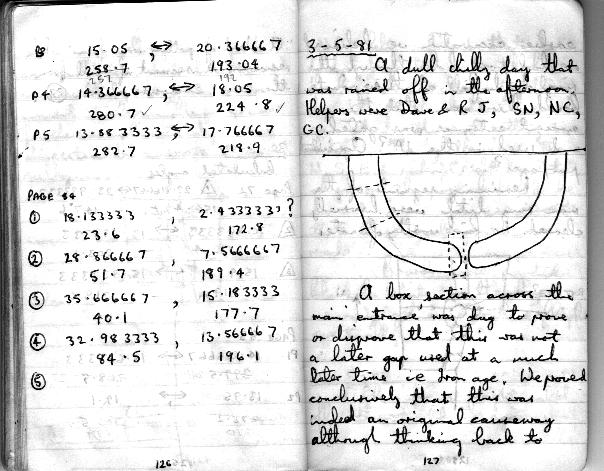 15.05 ⟷ 20.366667
258.7 , 193.04
257 192
P4 14.366667, ⟷ 18.05
280.7 ✓ 224.8 ✓
P5 13.883333 ⟷ 17.766667
282.7 218.9
PAGE 84
① 18.133333 , 2.4333333?
23.6 172.8
② 28.866667 , 7.5666667
51.7 189.4
③ 35.666667 , 15.183333
40.1 177.7
④ 32.983333 , 13.56667
84.5 196.1
⑤
126
3-5-81
A dull chilly day that
was rained off in the afternoon.
Helpers were Dave & R J, SN, NC,
GC.
A box section across the
main entrance was dug to prove
or disprove that this was not
a later gap used at a much
later time ie Iron age. We proved
conclusively that this was
indeed an original causeway
although thinking back to
127